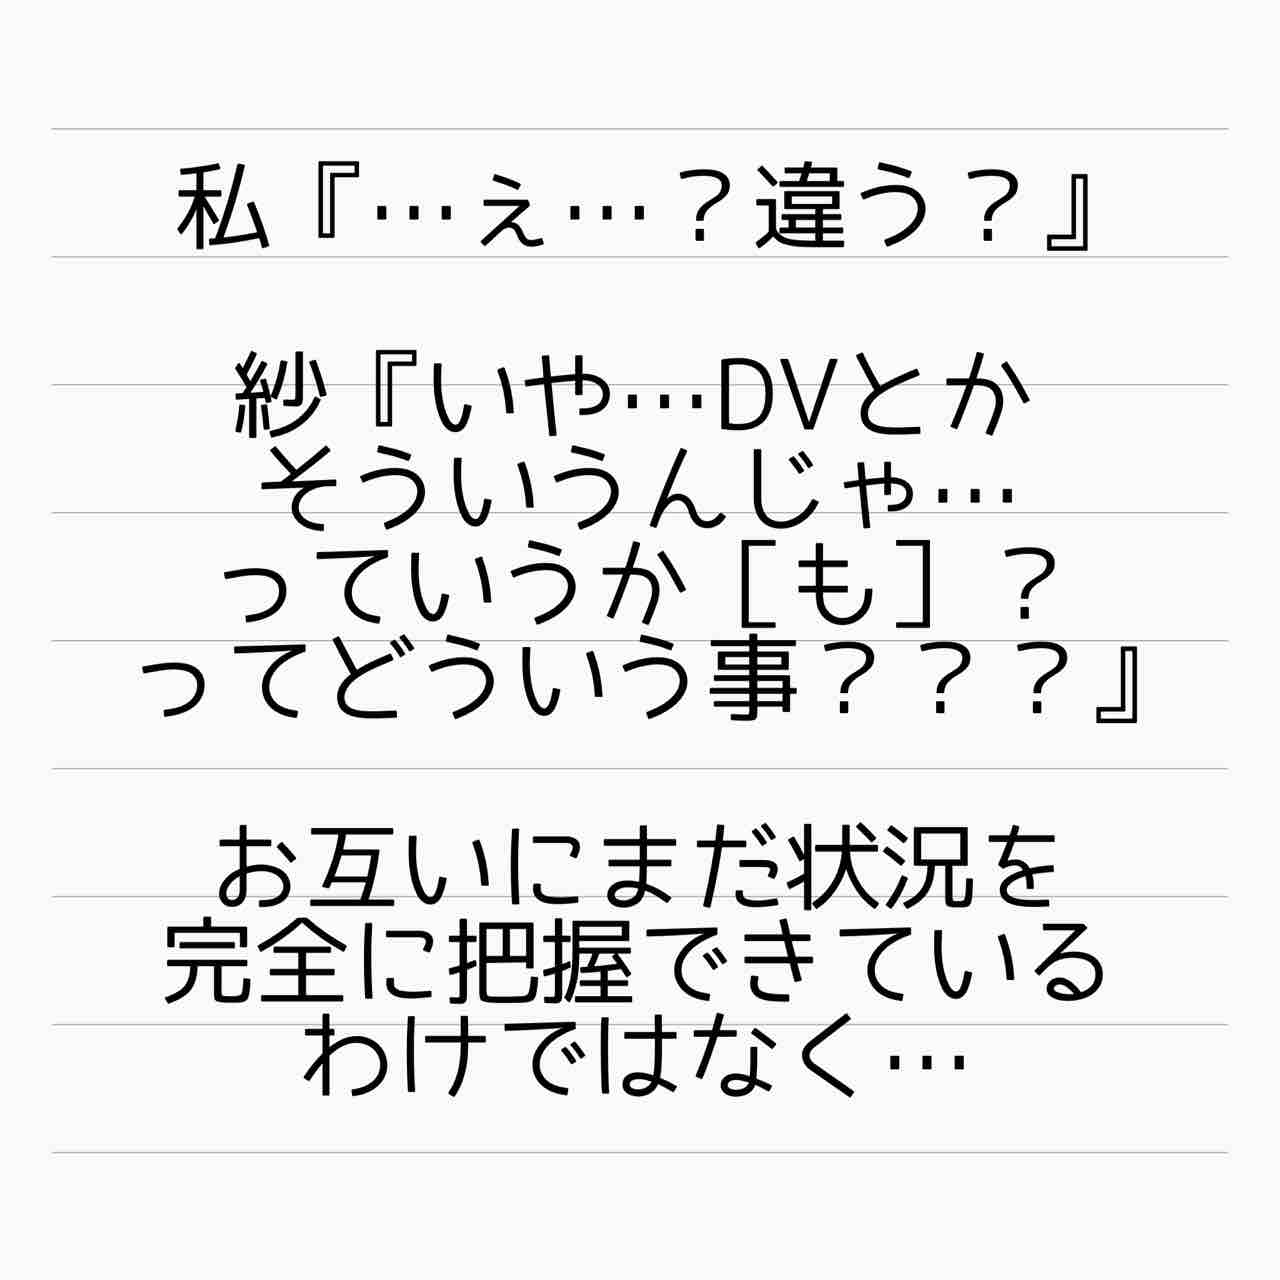 私『…ぇ…？違う？』
紗『いや…DVとか
そういうんじゃ…
っていうか［も］？
ってどういう事？？？』
お互いにまだ状況を
完全に把握できている
わけではなく…